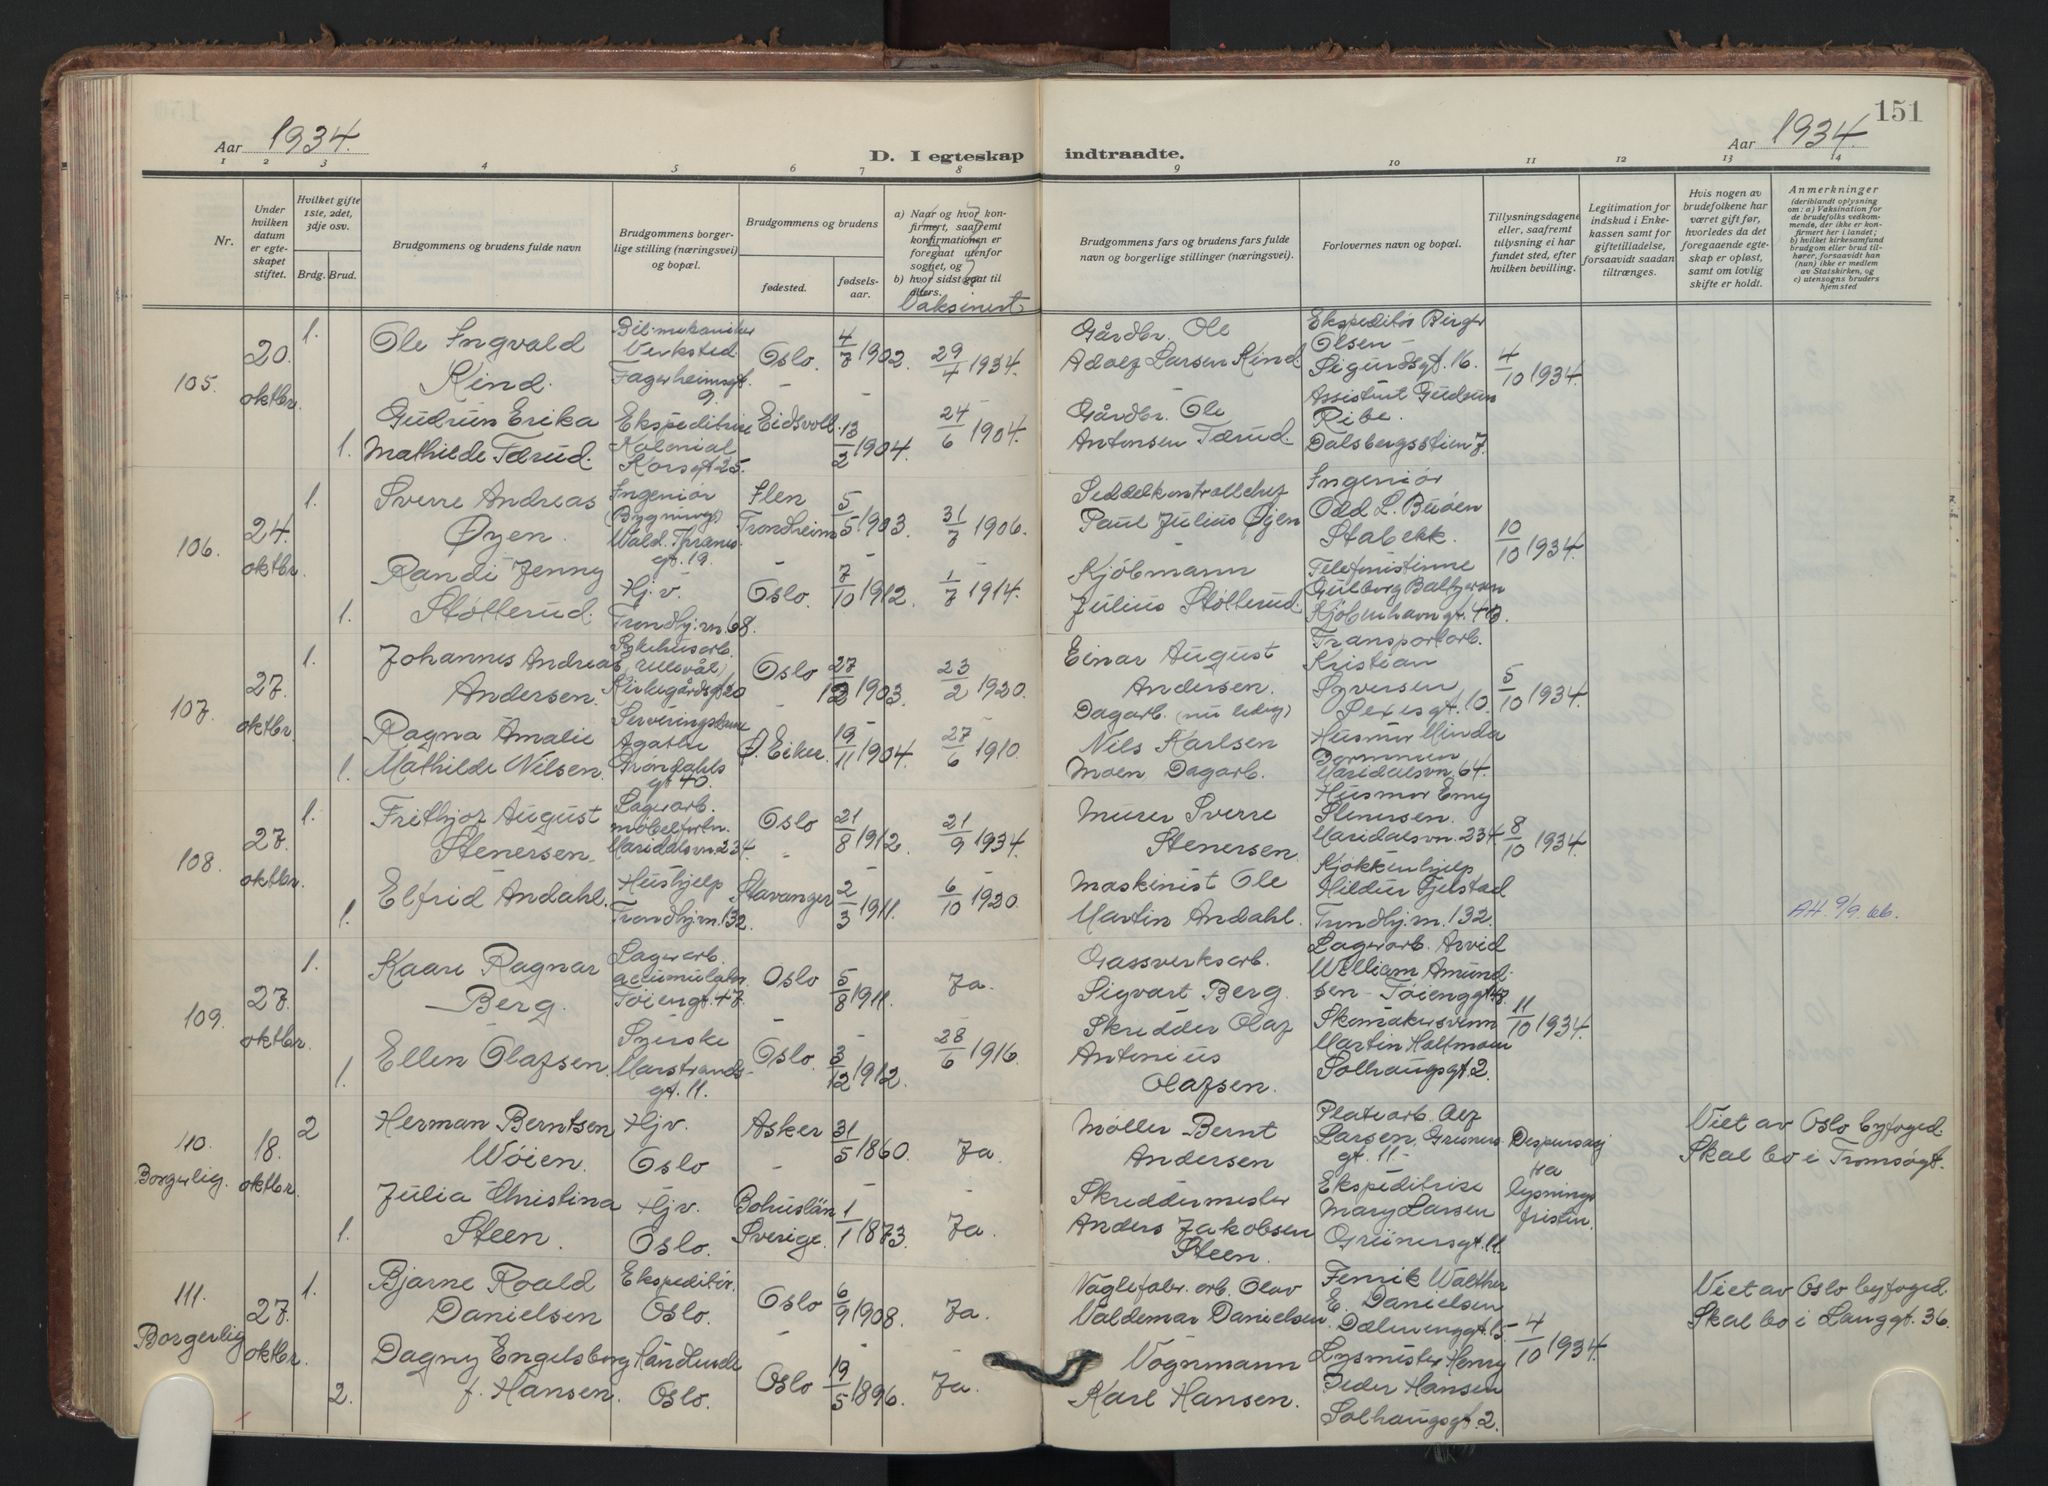 Aar 1934.
D. I egteskap indtraadte.
Aar 1934.
151
1 2 3 4 5 6 7 8 9 10 11 12 13 14
Nr.
Under hvilken datum er egteskapet stiftet.
Hvilket gifte 1ste, 2det, 3dje osv.
Brdg. Brud.
Brudgommens og brudens fulde navn
Brudgommens borgerlige stilling (næringsvei) og bopæl.
Brudgommens og brudens
fødested.
fødselsaar.
a) Naar og hvor konfirmert, saafremt konfirmationen er foregaat utenfor sognet, og
b) hvor sidst gaat til alters.
Vaksinert
Brudgommens fars og brudens fars fulde navn og borgerlige stillinger (næringsvei).
Forlovernes navn og bopæl.
Tillysningsdagene eller, saafremt tillysning ei har fundet sted, efter hvilken bevilling.
Legitimation for indskud i Enkekassen samt for giftetilladelse, forsaavidt saadan tiltrænges.
Hvis nogen av brudefolkene har været gift før, hvorledes da det foregaaende egteskap er opløst, samt om lovlig skifte er holdt.
Anmerkninger
(deriblandt oplysning om: a) Vaksination for de brudefolks vedkommende, der ikke er konfirmert her i landet;
b) hvilket kirkesamfund brudgom eller brud tilhører, forsaavidt han (hun) ikke er medlem av Statskirken, og
c) utensogns bruders hjemsted
105.
20. oktbr.
1.
Ole Ingvald Rind.
Bil-mekaniker Verksted Fagerheimsgt. 9.
Oslo.
4/7 1902.
29/4 1934.
Gårdbr. Ole Adolf Larsen Rind.
Ekspeditør Birger Olsen - Sigurdsgt. 16.
4/10 1934.
1.
Gudrun Erika Mathilde Tærud.
Ekspeditrise Kolonial Korsgt. 25.
Eidsvoll.
13/2 1904.
24/6 1904.
Gårdbr. Ole Antonsen Tærud.
Assistent Gudrun Ribe. Dalsbergsstien 7.
106.
24. oktbr.
1.
Sverre Andreas Øyen.
Ingeniør (Bygnings) Wald. Thranes gt. 19.
Ilen Trondheim
5/5 1903.
31/7 1906.
Seddelkontrollchef Paul Julius Øyen
Ingeniør Odd L. Buøen Stabekk.
10/10 1934.
1.
Randi Jenny Støtterud.
Hj. v. Trondhj.vn. 68.
Oslo.
7/10 1912.
1/7 1914.
Kjøbmann Julius Støtterud.
Telefonistinne Gulborg Baltzersen Kjøbenhavngt.
107.
27. oktbr.
1.
Johannes Andreas Andersen.
Sykehusarb. (Ullevål) Kirkegårdsgt. 20
Oslo
27/12 1903.
23/2 1920.
Einar August Andersen. Dagarb. (nu ledig)
Transportarb. Kristian Syversen Sexesgt. 10.
5/10 1934.
1.
Ragna Amalie Mathilde Nilsen.
Serveringsdame Agathe Grøndahls gt. 40.
Ø. Eiker.
19/11 1904.
27/6 1910.
Nils Karlsen Moen Dagarb.
Husmor Minda Maridalsvn. 64.
108.
27. oktbr.
1.
Frithjof August Stenersen.
Lagerarb. møbelforln. Maridalsvn. 234.
Oslo
21/8 1912.
21/9 1934.
Murer Sverre Stenersen.
Husmor Emy Stenersen. Maridalsvn. 234.
8/10 1934.
1.
Elfrid Andahl.
Hushjelp Trondhj.vn. 132.
Stavanger
2/3 1911.
6/10 1920.
Maskinist Ole Martin Andahl.
Kjøkkenhjelp Hildur Fjelstad Trondhj.vn. 132.
AH. 9/9. 66.
109.
27. oktbr.
1.
Kaare Ragnar Berg.
Lagerarb. Tøiengt. 47.
Oslo
5/8 1911.
Ja.
Gassverksarb. Sigvart Berg.
Lagerarb. Arvid William Amundsen - Tøienggt. 48.
11/10 1934.
1.
Ellen Olafsen.
Syerske Marstrandsgt. 11.
Oslo.
3/12 1912.
28/6 1916.
Skredder Olaf Antonius Olafsen.
Skomakersvenn Martin Holtmoen Solhaugsgt. 2.
110. Borgerlig.
18. oktbr.
2
Herman Berntsen Wøien.
Hjv. Oslo
Asker
31/5 1860.
Ja.
Møller Bernt Andersen
Platearb. Alf Larsen, Grünersgt. 11.-
Dispensasj fra lysningsfristen.
Viet av Oslo byfoged. Skal bo i Tromsøgt.
1.
Julia Christina Steen.
Hjv. Oslo.
Bohuslän Sverige.
1/1 1873.
Ja.
Skreddermester Anders Jakobsen Steen.
Ekspeditrise Mary Larsen Grünersgt. 11.
111. Borgerlig
27. oktbr.
1.
Bjarne Roald Danielsen
Ekspeditør. Oslo.
Oslo
6/9 1908.
Ja.
Naglefabr. arb. Olav Valdemar Danielsen.
Fenrik Walther E. Danielsen Dælenenggt. 15.
4/10 1934.
Viet av Oslo byfoged. Skal bo i Langgt. 36.
2.
Dagny Engelsborg f. Hansen.
Handlende Oslo.
Oslo
19/5 1896.
Ja.
Vognmann Karl Hansen.
Lysmester Henry Peder Hansen Solhaugsgt. 2.